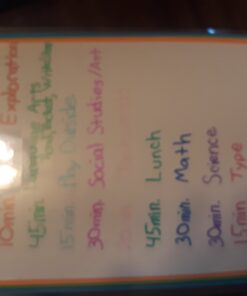 10min. Exploration
45min. Language Arts
15min. Play Outside
30min. Social Studies/Art
45min. Lunch
30min. Math
30min. Science
15min. Type